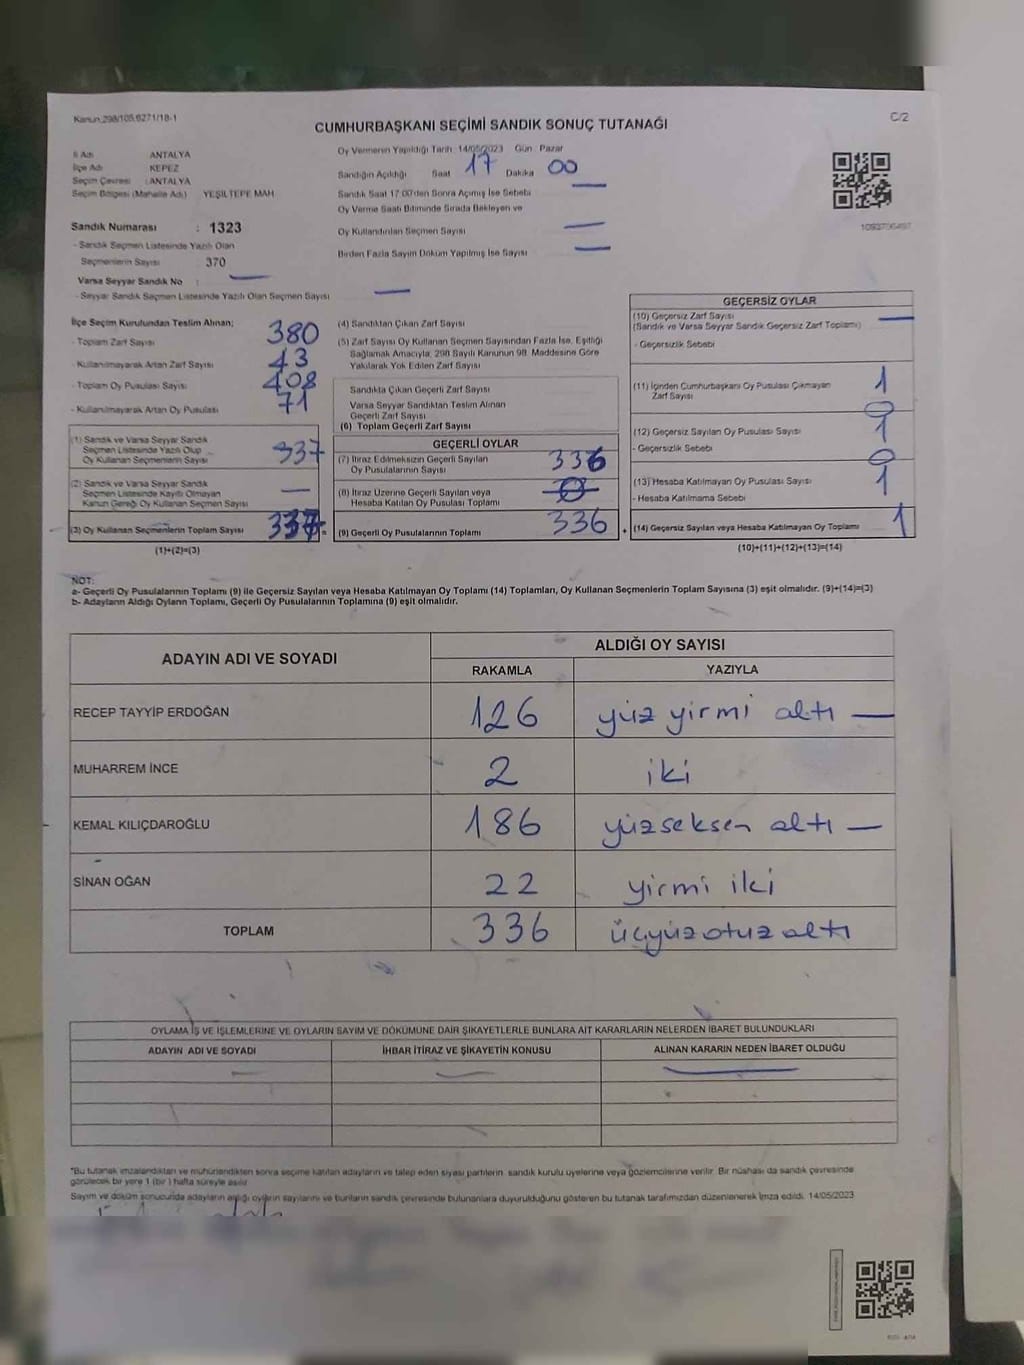 Kanun:298/105,6271/18-1
CUMHURBAŞKANI SEÇİMİ SANDIK SONUÇ TUTANAĞI
C/2
İl Adı ANTALYA
İlçe Adı KEPEZ
Seçim Çevresi : ANTALYA
Seçim Bölgesi (Mahalle Adı) YEŞİLTEPE MAH.
Oy Vermenin Yapıldığı Tarih: 14/05/2023 Gün Pazar
Sandığın Açıldığı Saat 17 Dakika 00
Sandık Saat 17:00'den Sonra Açımış İse Sebebi —
Oy Verme Saati Bitiminde Sırada Bekleyen ve
Oy Kullandırılan Seçmen Sayısı —
Birden Fazla Sayım Döküm Yapılmış İse Sayısı —
Sandık Numarası : 1323
- Sandık Seçmen Listesinde Yazılı Olan
Seçmenlerin Sayısı 370
Varsa Seyyar Sandık No : —
- Seyyar Sandık Seçmen Listesinde Yazılı Olan Seçmen Sayısı —
İlçe Seçim Kurulundan Teslim Alınan;
- Toplam Zarf Sayısı 380
- Kullanılmayarak Artan Zarf Sayısı 43
- Toplam Oy Pusulası Sayısı 408
- Kullanılmayarak Artan Oy Pusulası 71
(1) Sandık ve Varsa Seyyar Sandık
Seçmen Listesinde Yazılı Olup
Oy Kullanan Seçmenlerin Sayısı 337
(2) Sandık ve Varsa Seyyar Sandık
Seçmen Listesinde Kayıtlı Olmayan
Kanun Gereği Oy Kullanan Seçmen Sayısı —
(3) Oy Kullanan Seçmenlerin Toplam Sayısı 337 =
(1)+(2)=(3)
(4) Sandıktan Çıkan Zarf Sayısı
(5) Zarf Sayısı Oy Kullanan Seçmen Sayısından Fazla İse, Eşitliği
Sağlamak Amacıyla, 298 Sayılı Kanunun 98. Maddesine Göre
Yakılarak Yok Edilen Zarf Sayısı
Sandıkta Çıkan Geçerli Zarf Sayısı
Varsa Seyyar Sandıktan Teslim Alınan
Geçerli Zarf Sayısı
(6) Toplam Geçerli Zarf Sayısı
GEÇERLİ OYLAR
(7) İtiraz Edilmeksizin Geçerli Sayılan
Oy Pusulalarının Sayısı 336
(8) İtiraz Üzerine Geçerli Sayılan veya
Hesaba Katılan Oy Pusulası Toplamı
(9) Geçerli Oy Pusulalarının Toplamı 336 +
GEÇERSİZ OYLAR
(10) Geçersiz Zarf Sayısı
(Sandık ve Varsa Seyyar Sandık Geçersiz Zarf Toplamı) —
- Geçersizlik Sebebi
(11) İçinden Cumhurbaşkanı Oy Pusulası Çıkmayan
Zarf Sayısı 1
(12) Geçersiz Sayılan Oy Pusulası Sayısı
- Geçersizlik Sebebi
(13) Hesaba Katılmayan Oy Pusulası Sayısı
- Hesaba Katılmama Sebebi
(14) Geçersiz Sayılan veya Hesaba Katılmayan Oy Toplamı 1
(10)+(11)+(12)+(13)=(14)
NOT:
a- Geçerli Oy Pusulalarının Toplamı (9) ile Geçersiz Sayılan veya Hesaba Katılmayan Oy Toplamı (14) Toplamları, Oy Kullanan Seçmenlerin Toplam Sayısına (3) eşit olmalıdır. (9)+(14)=(3)
b- Adayların Aldığı Oyların Toplamı, Geçerli Oy Pusulalarının Toplamına (9) eşit olmalıdır.
ADAYIN ADI VE SOYADI ALDIĞI OY SAYISI
RAKAMLA YAZIYLA
RECEP TAYYİP ERDOĞAN 126 yüz yirmi altı —
MUHARREM İNCE 2 iki
KEMAL KILIÇDAROĞLU 186 yüzseksen altı —
SİNAN OĞAN 22 yirmi iki
TOPLAM 336 üçyüzotuzaltı
OYLAMA İŞ VE İŞLEMLERİNE VE OYLARIN SAYIM VE DÖKÜMÜNE DAİR ŞİKAYETLERLE BUNLARA AİT KARARLARIN NELERDEN İBARET BULUNDUKLARI
ADAYIN ADI VE SOYADI İHBAR İTİRAZ VE ŞİKAYETİN KONUSU ALINAN KARARIN NEDEN İBARET OLDUĞU
*Bu tutanak imzalandıktan ve mühürlendikten sonra seçime katılan adayların ve talep eden siyasi partilerin, sandık kurulu üyelerine veya gözlemcilerine verilir. Bir nüshası da sandık çevresinde
görülecek bir yere 1 (bir) hafta süreyle asılır.
Sayım ve döküm sonucunda adayların aldığı oyların sayılarını ve bunların sandık çevresinde bulunanlara duyurulduğunu gösteren bu tutanak tarafımızdan düzenlenerek imza edildi. 14/05/2023